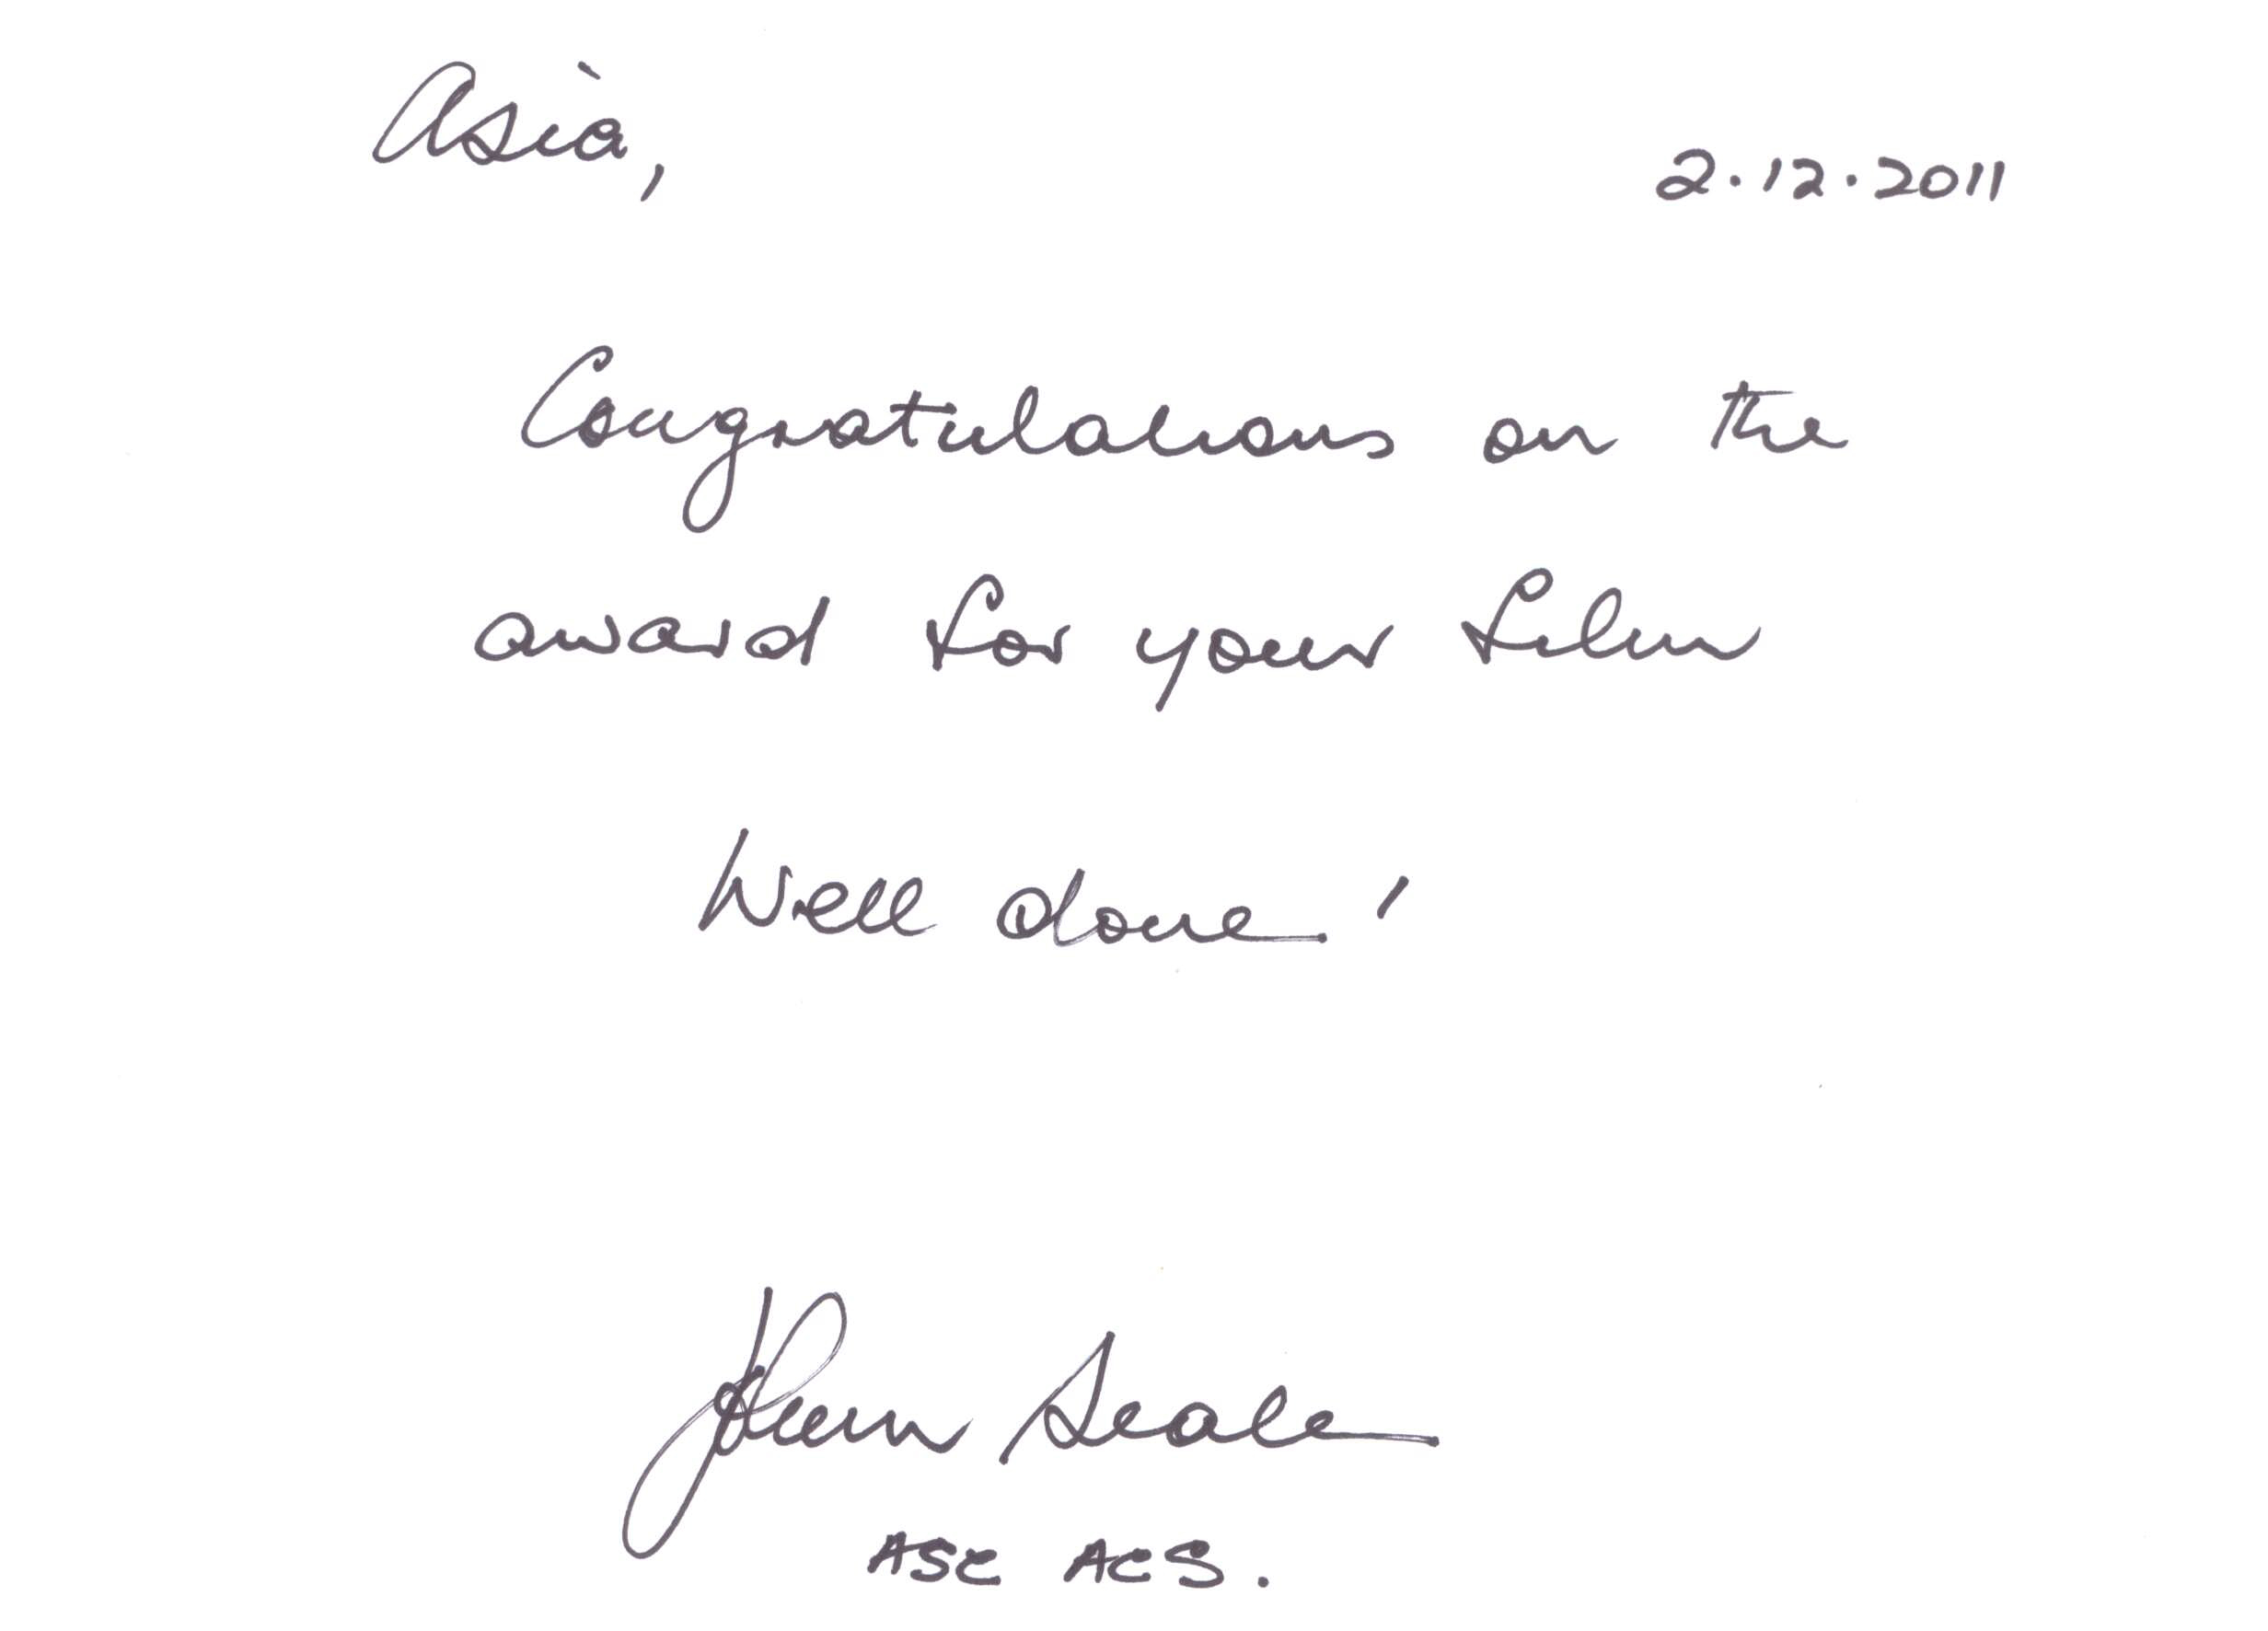 Asia,
2.12.2011
Congratulations on the
award for your film
Well done!
John Seale
ASC ACS.